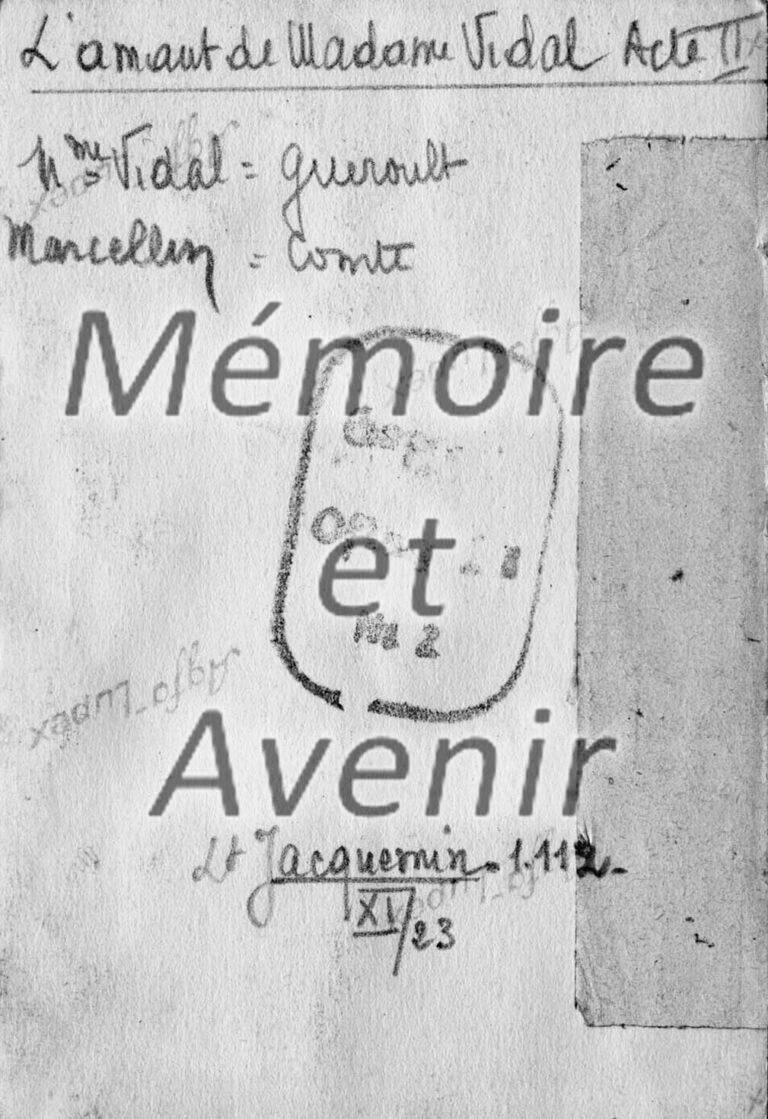 L'amant de Madame Vidal Acte II
Mme Vidal = Gueroult
Marcellin = Comte
Mémoire
et
Avenir
Nr 2
Agfa-Lupex
Lt Jacquemin - 1.112 -
XI/23